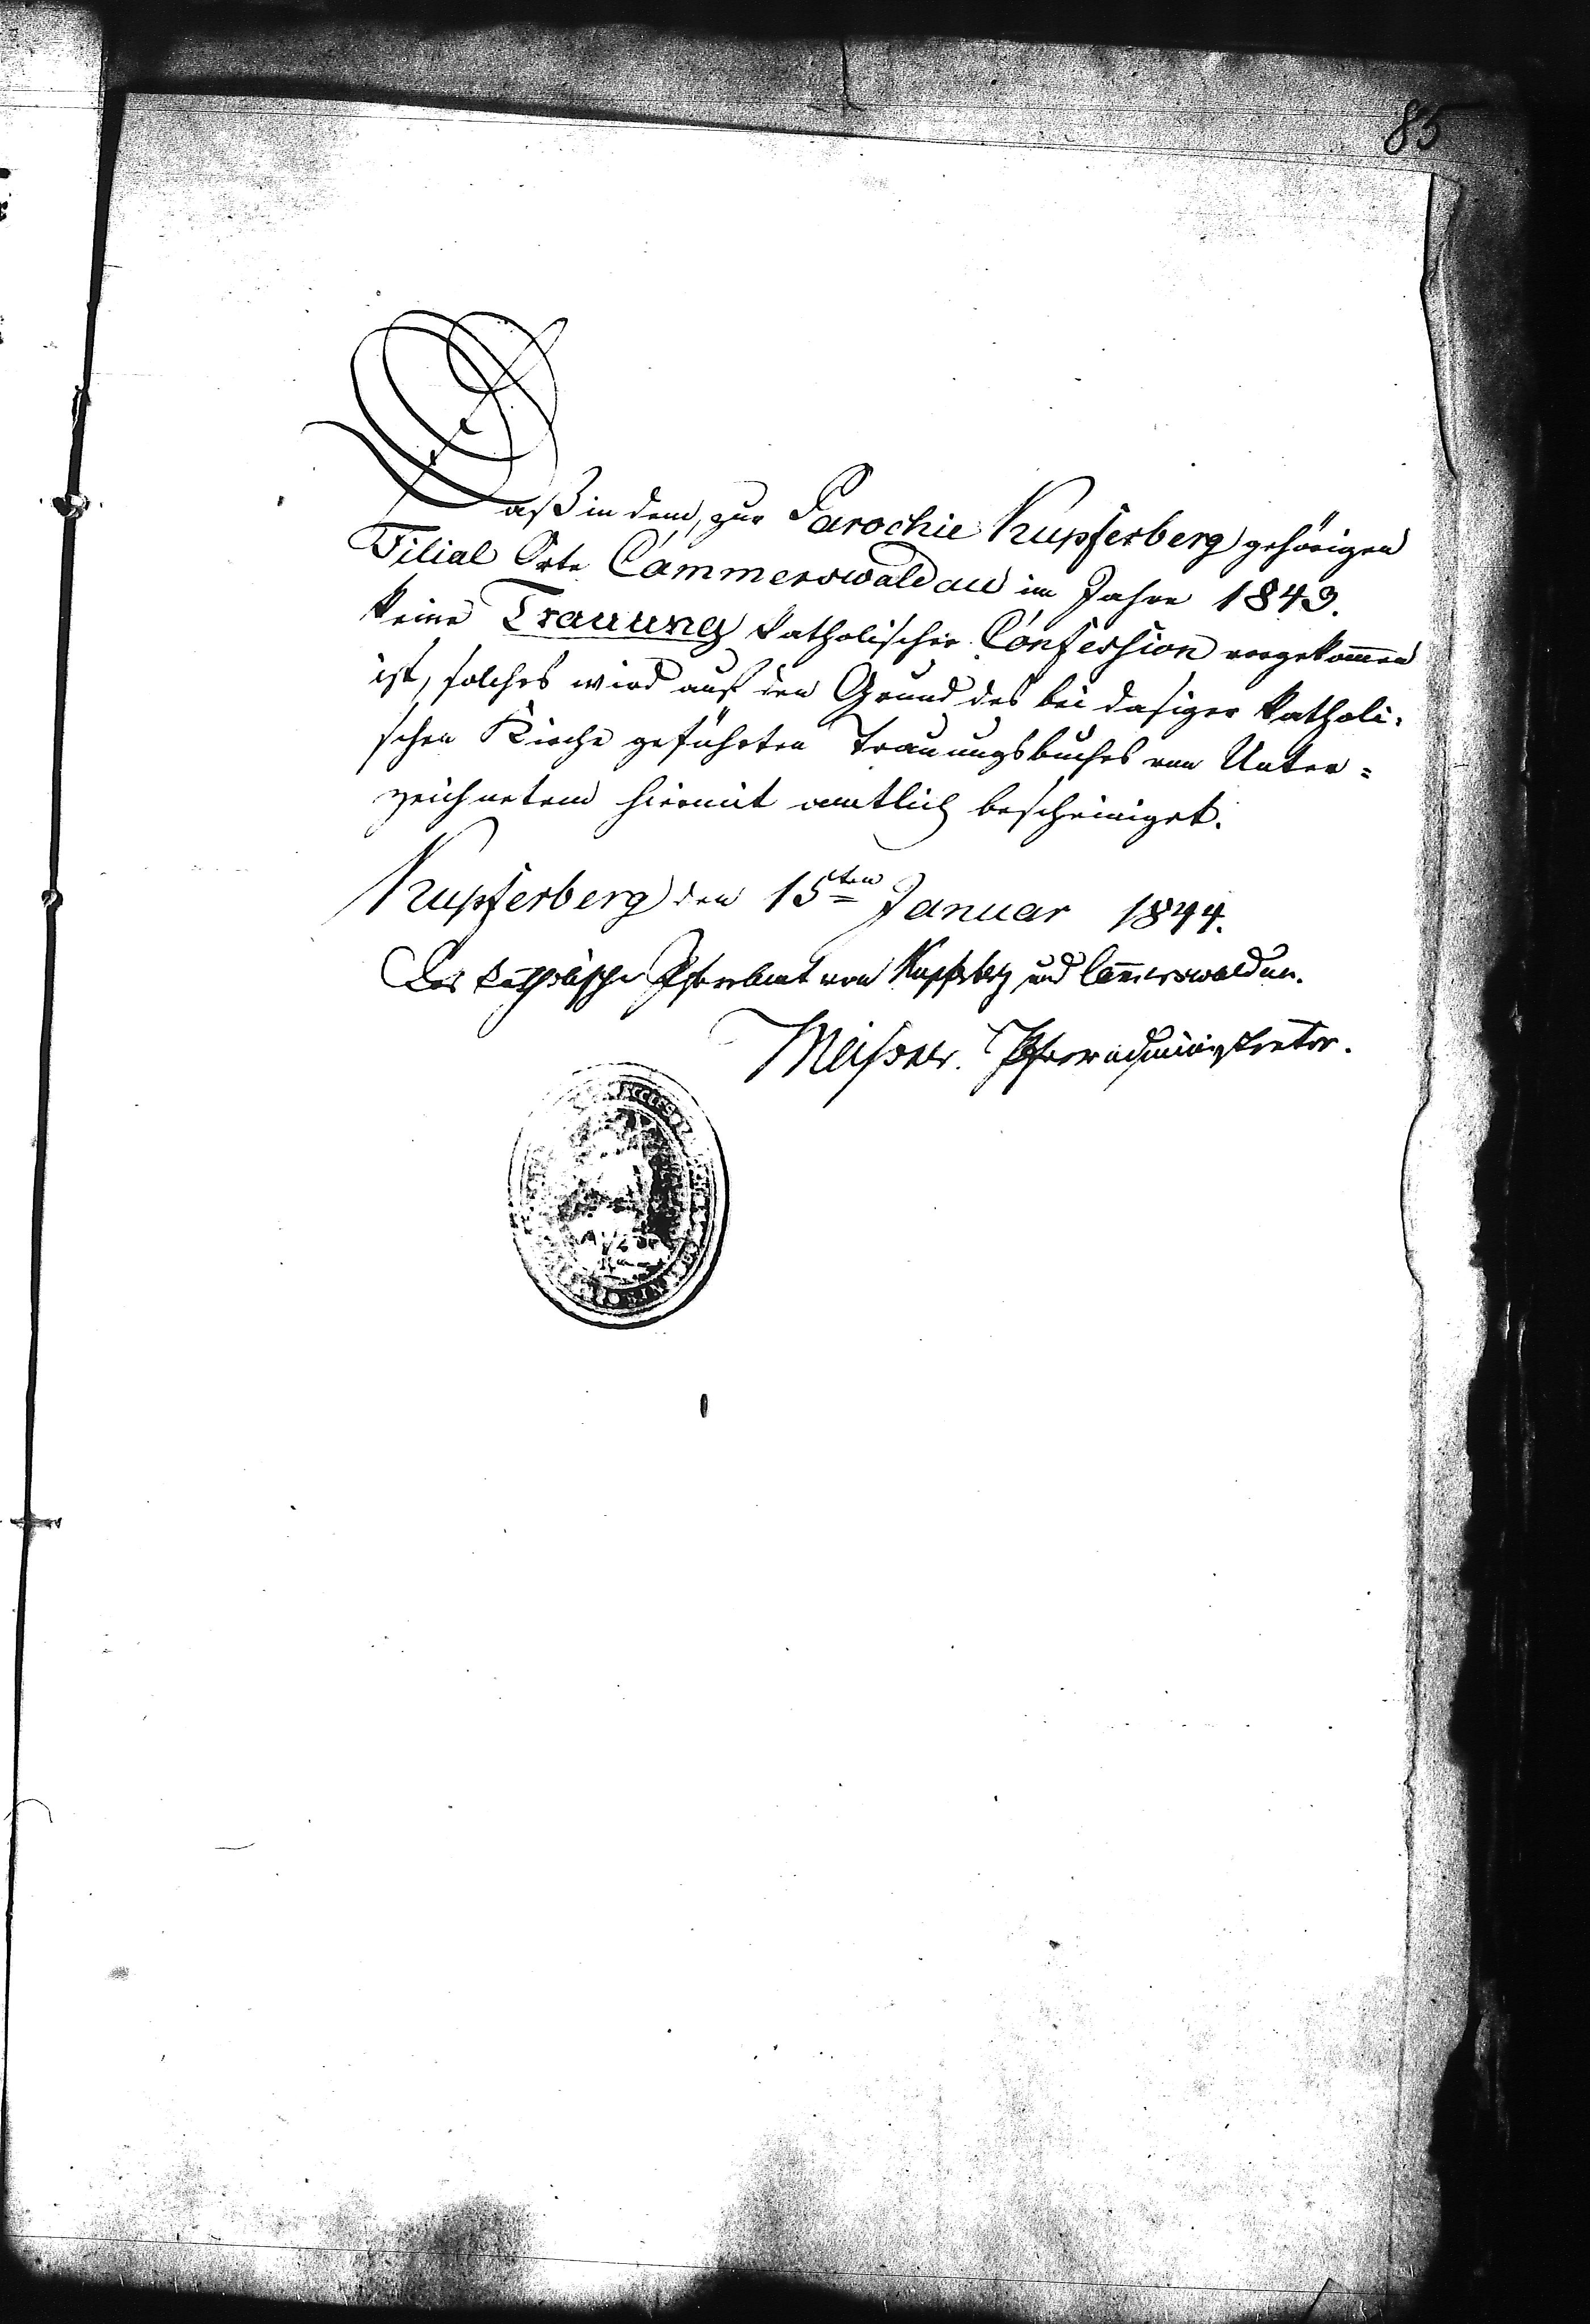 85
Daß in dem, zur Parochie Kupferberg gehörigen
Filial Orte Cammerswaldau im Jahre 1843.
keine Trauung katholischer Confession vorgekom̄en
ist, solches wird auf den Grund des bei dasiger katholi-
schen Kirche geführten Trauungsbuches von Unter=
zeichnetem hiermit amtlich bescheiniget.
Kupferberg den 15ten Januar 1844.
Das katholische Pfarramt von Kupferberg und Cam̄erswaldau.
Meisner. Pfarradministrator.